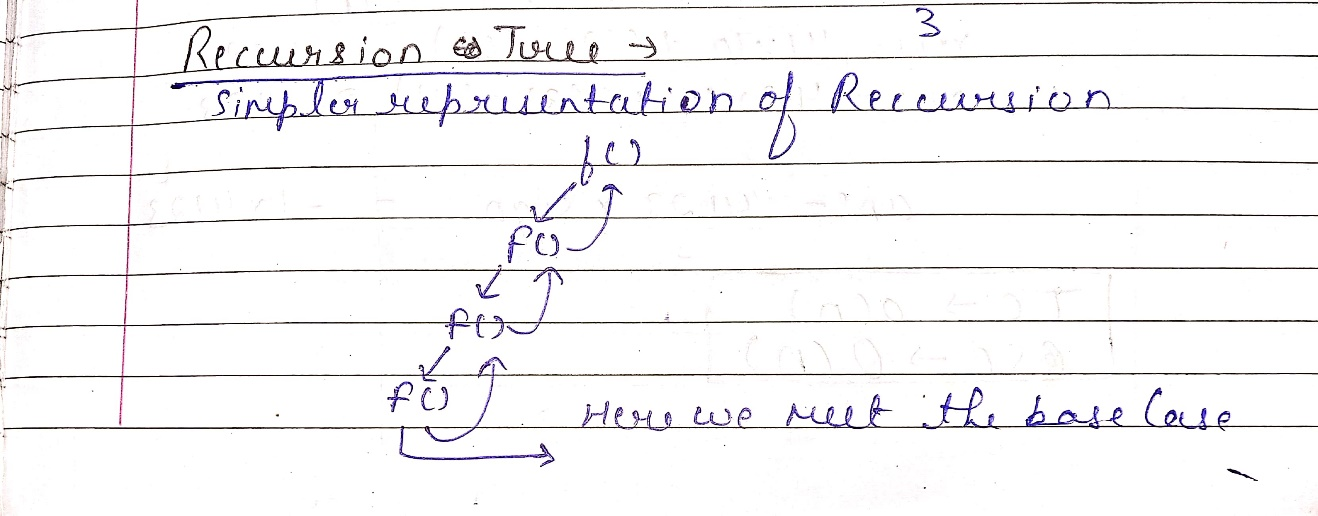 3
Reccursion Tree →
Simpler representation of Reccursion
f()
f()
f()
f()
Here we meet the base Case